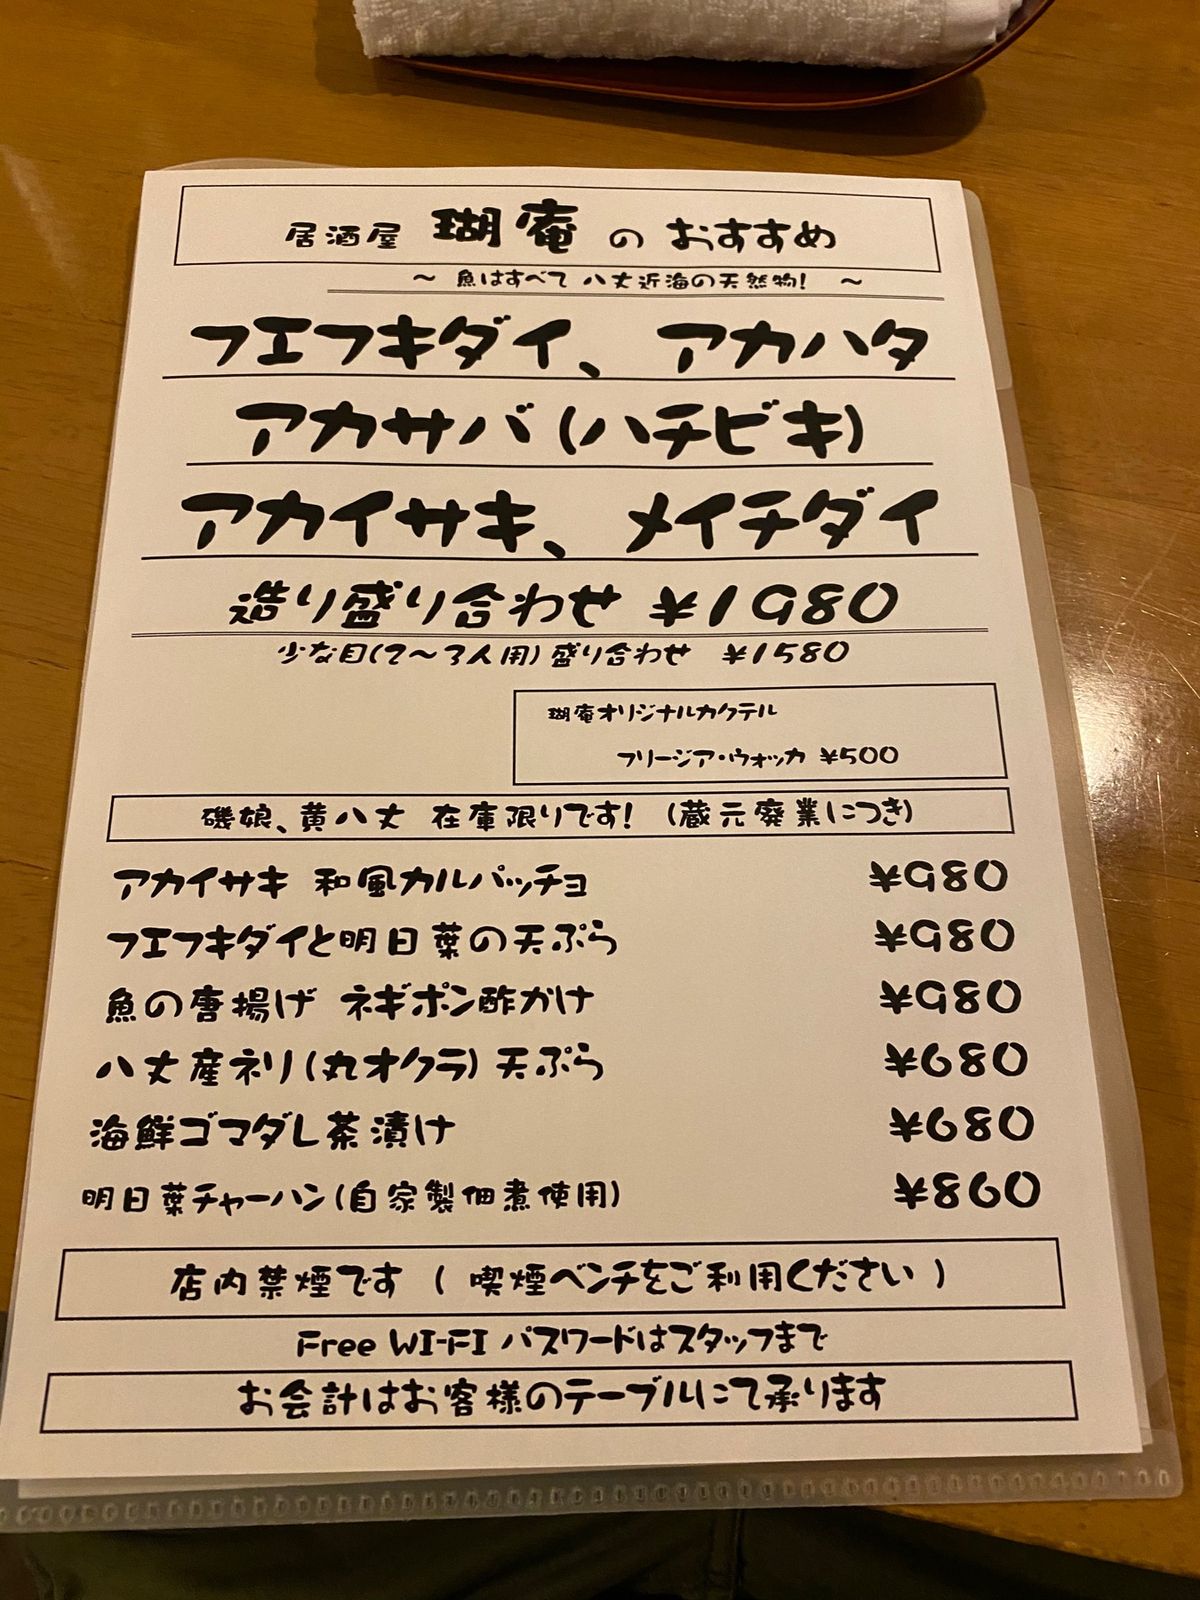 居酒屋 瑚庵 の おすすめ
～ 魚はすべて 八丈近海の天然物！ ～
フエフキダイ、アカハタ
アカサバ（ハチビキ）
アカイサキ、メイチダイ
造り盛り合わせ ¥1980
少な目（2～3人用）盛り合わせ ¥1580
瑚庵オリジナルカクテル
フリージア・ウォッカ ¥500
磯娘、黄八丈 在庫限りです！（蔵元廃業につき）
アカイサキ 和風カルパッチョ ¥980
フエフキダイと明日葉の天ぷら ¥980
魚の唐揚げ ネギポン酢かけ ¥980
八丈産ネリ（丸オクラ）天ぷら ¥680
海鮮ゴマダレ茶漬け ¥680
明日葉チャーハン（自家製佃煮使用） ¥860
店内禁煙です（ 喫煙ベンチをご利用ください ）
Free WI-FI パスワードはスタッフまで
お会計はお客様のテーブルにて承ります